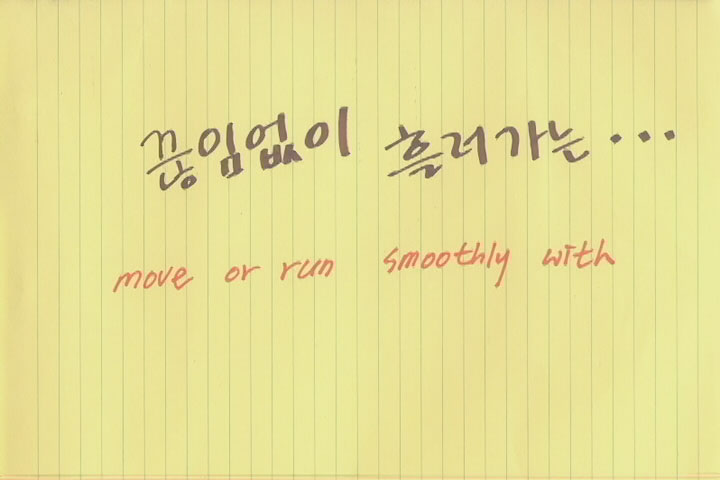 끊임없이 흘러가는...
move or run smoothly with